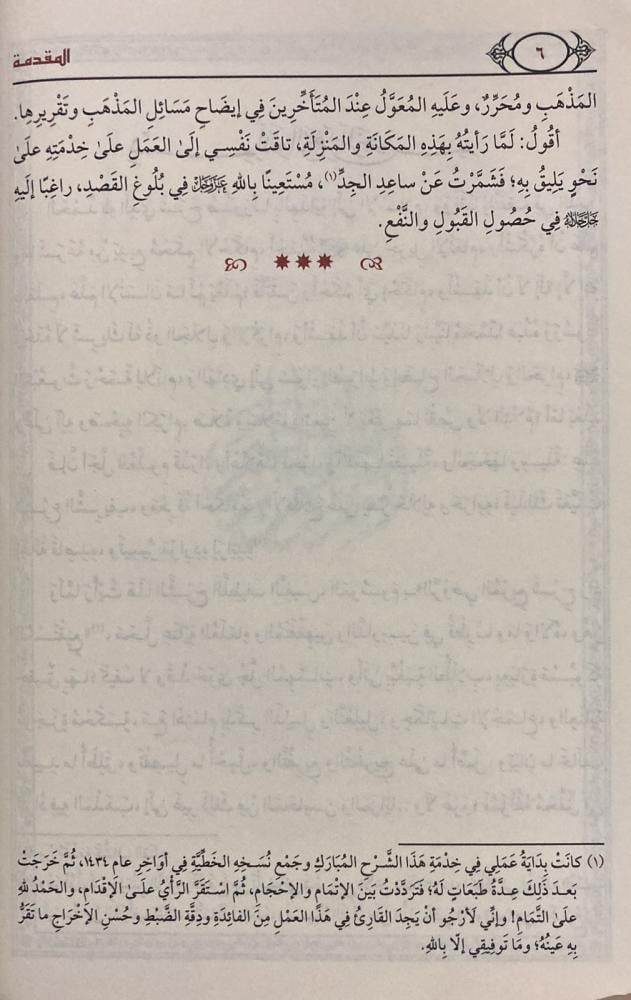 ٦
المقدمة
المَذْهَبِ ومُحَرِّرٌ، وعَلَيهِ المُعَوَّلُ عِنْدَ المُتَأَخِّرِينَ فِي إيضَاحِ مَسَائِلِ المَذْهَبِ وتَقْرِيرِها.
أقُولُ: لَمَّا رَأيتُهُ بِهَذِهِ المَكَانَةِ والمَنْزِلَةِ، تاقَتْ نَفْسِي إلَىٰ العَمَلِ علَىٰ خِدْمَتِهِ علَىٰ
نَحْوٍ يَلِيقُ بِهِ؛ فَشَمَّرْتُ عَنْ ساعِدِ الجِدِّ(١)، مُسْتَعِينًا بِاللهِ عَزَّوَجَلَّ فِي بُلُوغِ القَصْدِ، راغِبًا إلَيهِ
جَلَّجَلَالُهُ فِي حُصُولِ القَبُولِ والنَّفْعِ.
(١) كانَتْ بِدَايَةُ عَمَلِي فِي خِدْمَةِ هَذَا الشَّرْحِ المُبَارَكِ وجَمْعِ نُسَخِهِ الخَطِّيَّةِ فِي أوَاخِرِ عامِ ١٤٣٤، ثُمَّ خَرَجَتْ
بَعدَ ذَلِكَ عِدَّةُ طَبَعَاتٍ لَهُ؛ فَتَرَدَّدْتُ بَينَ الإتْمَامِ والإحْجَامِ، ثُمَّ اسْتَقَرَّ الرَّأيُ علَىٰ الإقْدَامِ، والحَمْدُ للهِ
علَىٰ التَّمَامِ! وإنِّي لَأرْجُو أنْ يَجِدَ القَارِئُ فِي هَذَا العَمَلِ مِنَ الفَائِدَةِ ودِقَّةِ الضَّبْطِ وحُسْنِ الإخْرَاجِ ما تَقَرُّ
بِهِ عَينُهُ؛ ومَا تَوفِيقِي إلَّا بِاللهِ.